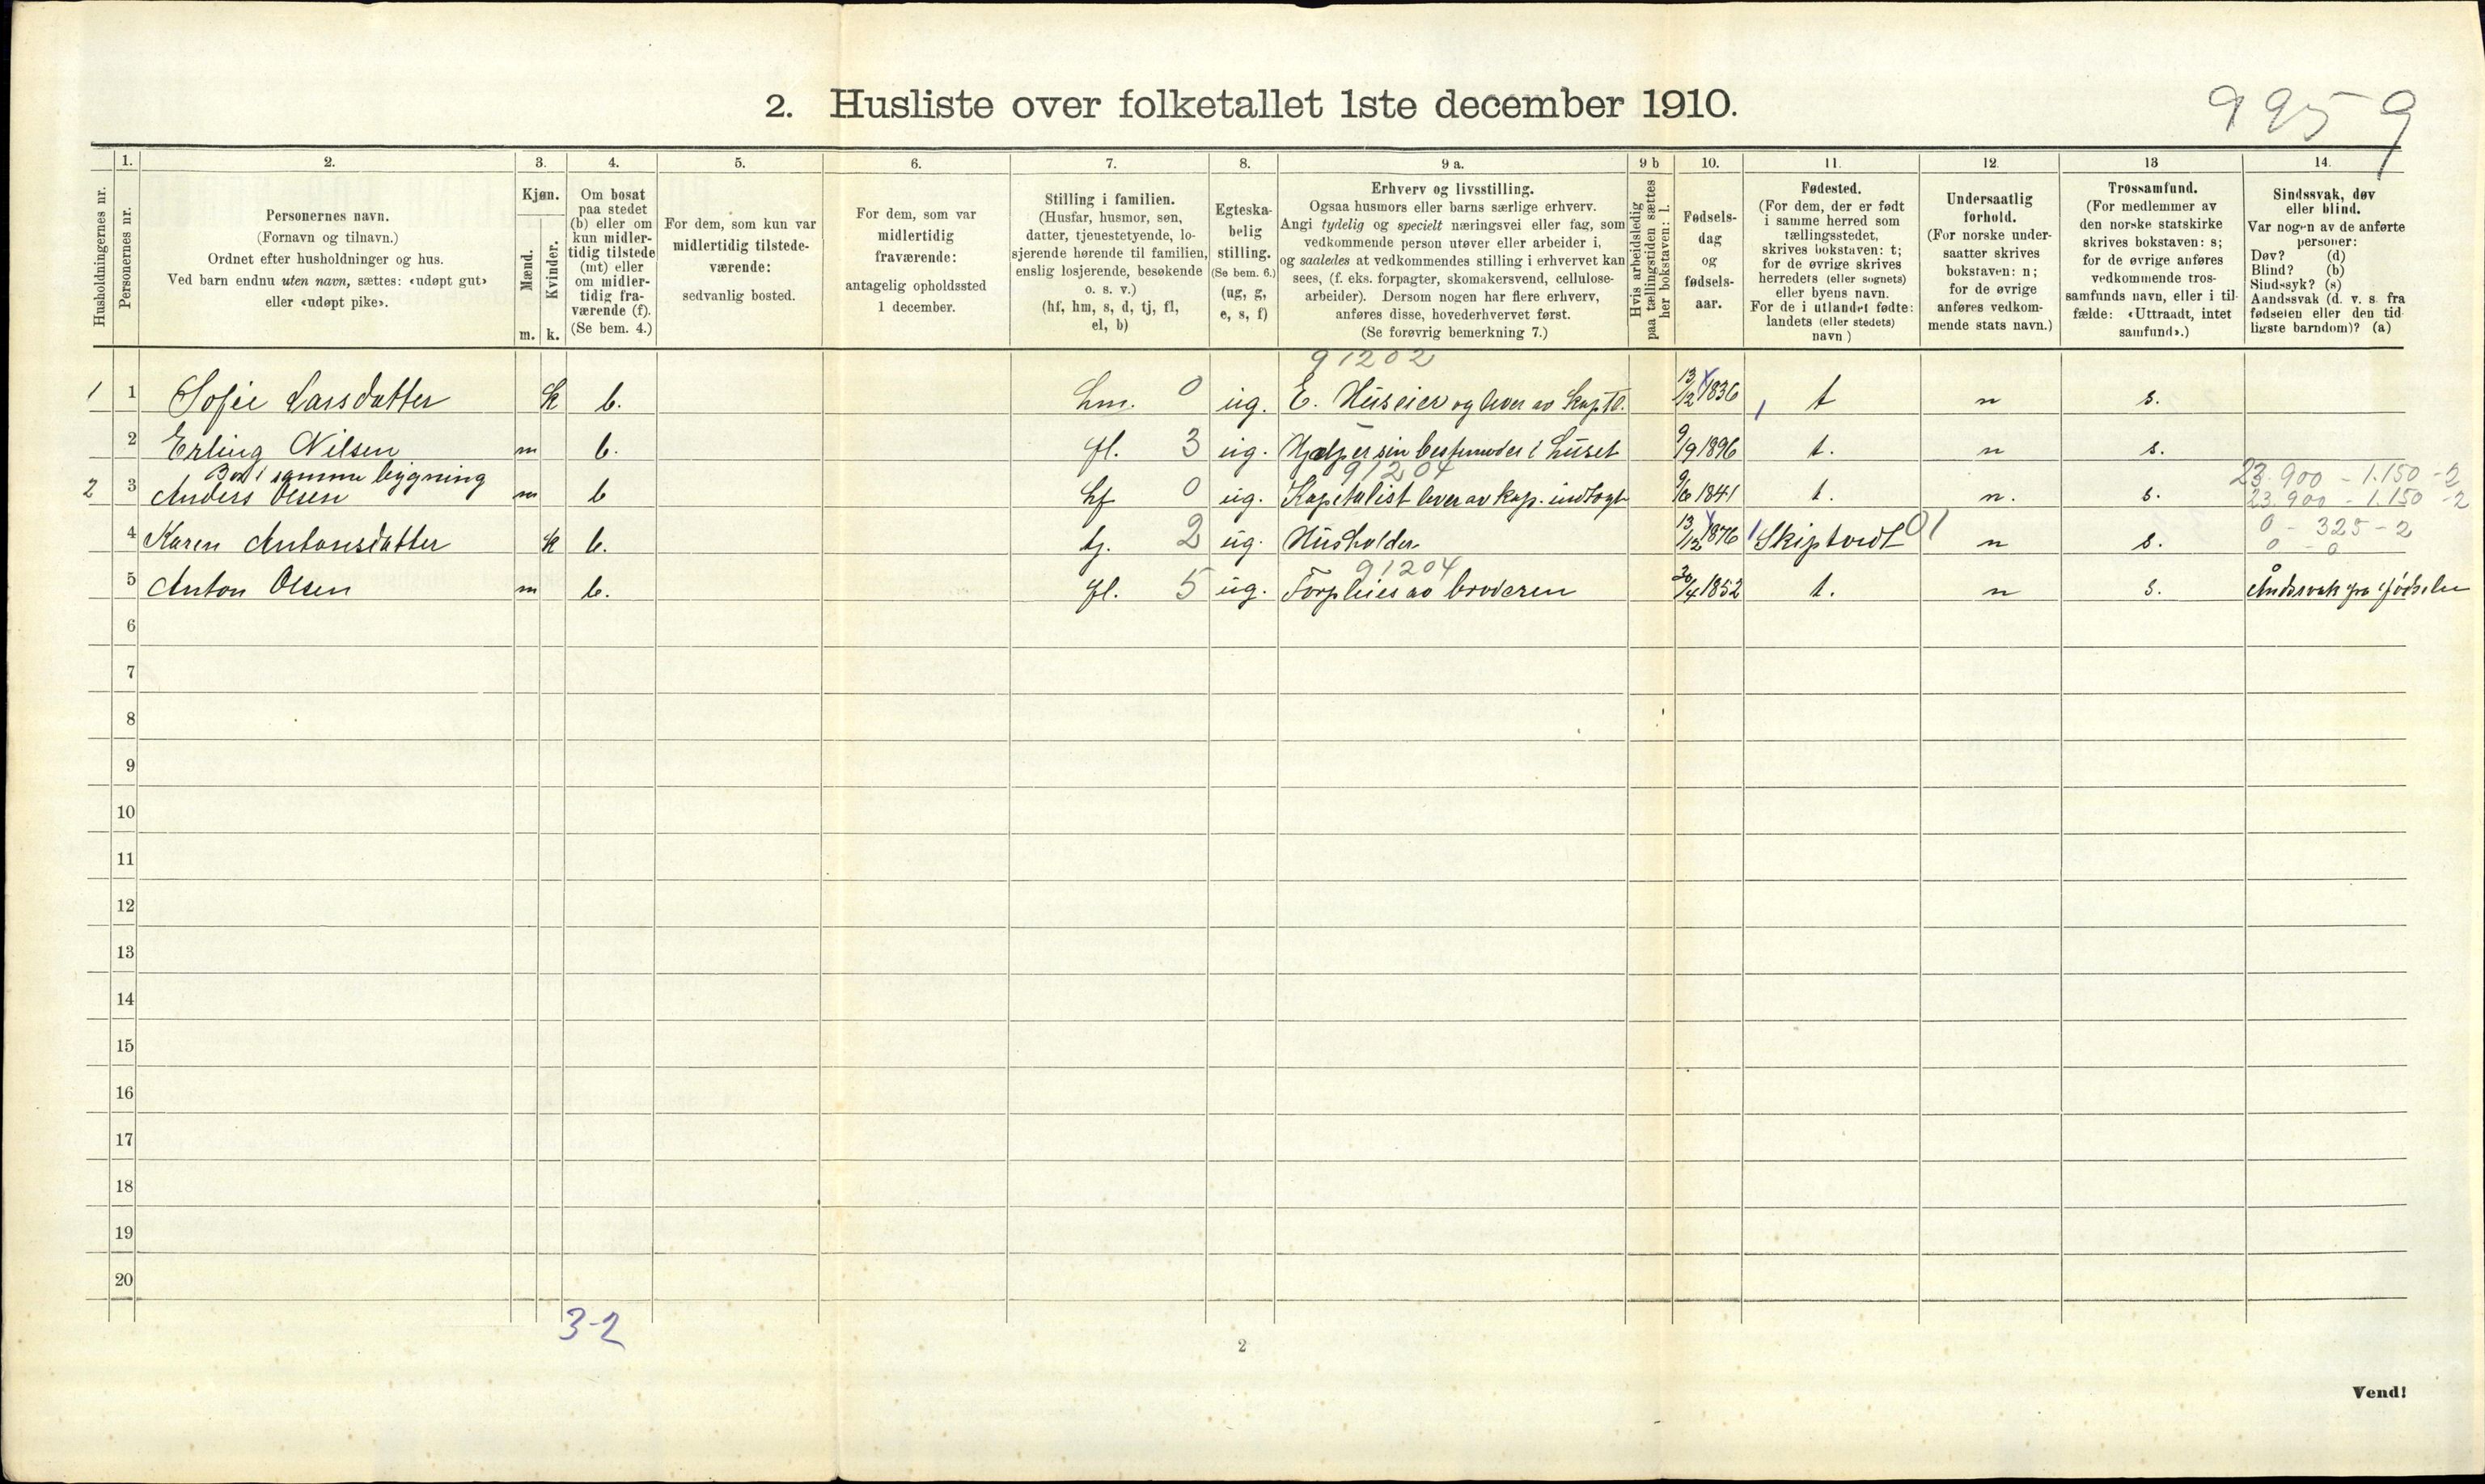 2. Husliste over folketallet 1ste december 1910.
9959
Husholdningernes nr.
1.
Personernes nr.
2.
Personernes navn.
(Fornavn og tilnavn.)
Ordnet efter husholdninger og hus.
Ved barn endnu uten navn, sættes: «udøpt gut»
eller «udøpt pike».
3.
Kjøn.
Mænd.
Kvinder.
m. k.
4.
Om bosat
paa stedet
(b) eller om
kun midler-
tidig tilstede
(mt) eller
om midler-
tidig fra-
værende (f).
(Se bem. 4.)
5.
For dem, som kun var
midlertidig tilstede-
værende:
sedvanlig bosted.
6.
For dem, som var
midlertidig
fraværende:
antagelig opholdssted
1 december.
7.
Stilling i familien.
(Husfar, husmor, søn,
datter, tjenestetyende, lo-
sjerende hørende til familien,
enslig losjerende, besøkende
o. s. v.)
(hf, hm, s, d, tj, fl,
el, b)
8.
Egteska-
belig
stilling.
(Se bem. 6.)
(ug, g,
e, s, f)
9 a.
Erhverv og livsstilling.
Ogsaa husmors eller barns særlige erhverv.
Angi tydelig og specielt næringsvei eller fag, som
vedkommende person utøver eller arbeider i,
og saaledes at vedkommendes stilling i erhvervet kan
sees, (f. eks. forpagter, skomakersvend, cellulose-
arbeider). Dersom nogen har flere erhverv,
anføres disse, hovederhvervet først.
(Se forøvrig bemerkning 7.)
9 b
Hvis arbeidsledig
paa tællingstiden sættes
her bokstaven: l.
10.
Fødsels-
dag
og
fødsels-
aar.
11.
Fødested.
(For dem, der er født
i samme herred som
tællingsstedet,
skrives bokstaven: t;
for de øvrige skrives
herredets (eller sognets)
eller byens navn.
For de i utlandet fødte:
landets (eller stedets)
navn)
12.
Undersaatlig
forhold.
(For norske under-
saatter skrives
bokstaven: n;
for de øvrige
anføres vedkom-
mende stats navn.)
13
Trossamfund.
(For medlemmer av
den norske statskirke
skrives bokstaven: s;
for de øvrige anføres
vedkommende tros-
samfunds navn, eller i til-
fælde: «Uttraadt, intet
samfund».)
14.
Sindssvak, døv
eller blind.
Var nogen av de anførte
personer:
Døv? (d)
Blind? (b)
Sindssyk? (s)
Aandssvak (d. v. s. fra
fødselen eller den tid-
ligste barndom)? (a)
91202
1 1 Sofie Larsdatter k b. hm. 0 ug. E. Huseier og lever av Kapt. 13/12 1836 t n s.
2 Erling Nilsen m b. fl. 3 ug. Hjælper sin bestemoder i huset 9/9 1896 t. n s.
Bor i samme bygning
91204
23.900 - 1.150 - 2
2 3 Anders Olsen m b hf 0 ug. Kapetalist lever av kap. indtægt 9/6 1841 t. n. s. 23.900 - 1.150 - 2
0 - 325 - 2
4 Karen Antonsdatter k b. tj. 2 ug. Husholder 13/12 1876 Skiptvedt 01 n s. 0 - 0
91204
5 Anton Olsen m b. fl. 5 ug. Forpleies av broderen 30/4 1852 t. n s. Åndsvak fra fødselen
6
7
8
9
10
11
12
13
14
15
16
17
18
19
20
3-2
2
Vend!